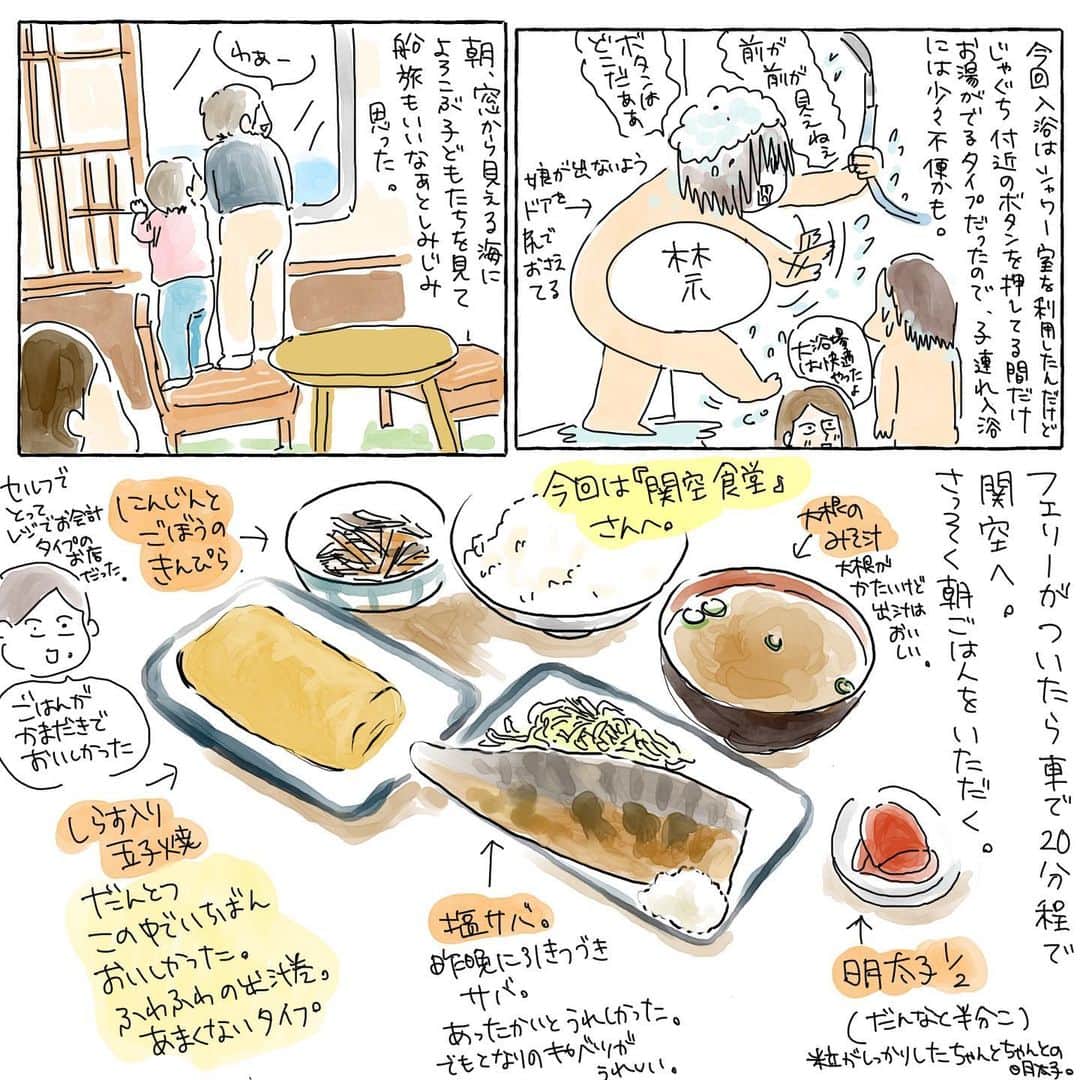 今回入浴はシャワー室を利用したんだけど
じゃぐち付近のボタンを押してる間だけ
お湯がでるタイプだったので、子連れ入浴
には少々不便かも。
前が
前が見えねぇ
ボタンは
どこだぁぁ
娘が出ないよう
ドアを
尻で
おさえ
てる
禁
大浴場
は快適
やったよ
朝、窓から見える海に
よろこぶ子どもたちを見て
船旅もいいなぁとしみじみ
思った。
わぁー
フェリーがついたら車で20分程で
関空へ。
さっそく朝ごはんをいただく。
今回は『関空食堂』
さんへ。
大根の
みそ汁
大根が
かたいけど
出汁は
おい
しい。
にんじんと
ごぼうの
きんぴら
セルフで
とって
レジでお会計
タイプの
お店
だった。
ごはんが
かまだきで
おいしかった
しらす入り
玉子焼
だんとつ
この中でいちばん
おいしかった。
ふわふわの出汁巻。
あまくないタイプ。
塩サバ。
昨晩に引きつづき
サバ。
あったかいとうれしかった。
でもとなりのキャベツが
うれしい。
明太子1/2
(だんなと半分こ)
粒がしっかりしたちゃんとちゃんとの
明太子。